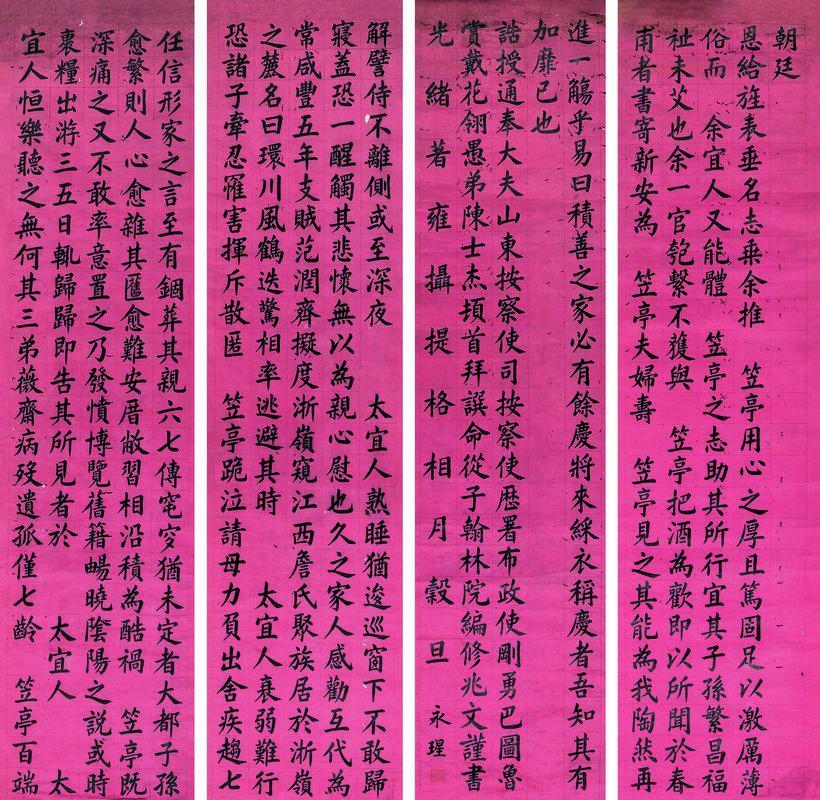 朝廷
恩給旌表垂名志乘余推 笠亭用心之厚且篤固足以激厲薄
俗而 余宜人又能體 笠亭之志助其所行宜其子孫繁昌福
祉未艾也余一官匏繫不獲與 笠亭把酒為歡即以所聞於春
南者書寄新安為 笠亭夫婦壽 笠亭見之其能為我陶然再
進一觴乎易曰積善之家必有餘慶將來綵衣稱慶者吾知其有
加靡已也
誥授通奉大夫山東按察使司按察使歷署布政使剛勇巴圖魯
賞戴花翎愚弟陳士杰頓首拜譔命從子翰林院編修兆文謹書
光緒著雍攝提格相月穀旦 永瑆
解譬侍不離側或至深夜 太宜人熟睡猶逡巡窗下不敢歸
寢蓋恐一醒觸其悲懷無以為親心慰也久之家人感勸互代為
常咸豐五年支賊范潤齊擬度浙嶺窺江西詹氏聚族居於浙嶺
之麓名曰環川風鶴迭驚相率逃避其時 太宜人衰弱難行
恐諸子牽忍罹害揮斥散匿 笠亭跪泣請母力負出舍疾趨七
任信形家之言至有錮葬其親六七傳窀穸猶未定者大都子孫
愈繁則人心愈雜其匶愈難安厝敝習相沿積為酷禍 笠亭既
深痛之又不敢率意置之乃發憤博覽舊籍暢曉陰陽之說或時
裹糧出游三五日輒歸歸即告其所見者於 太宜人 太
宜人恒樂聽之無何其三弟薇齋病歿遺孤僅七齡 笠亭百端